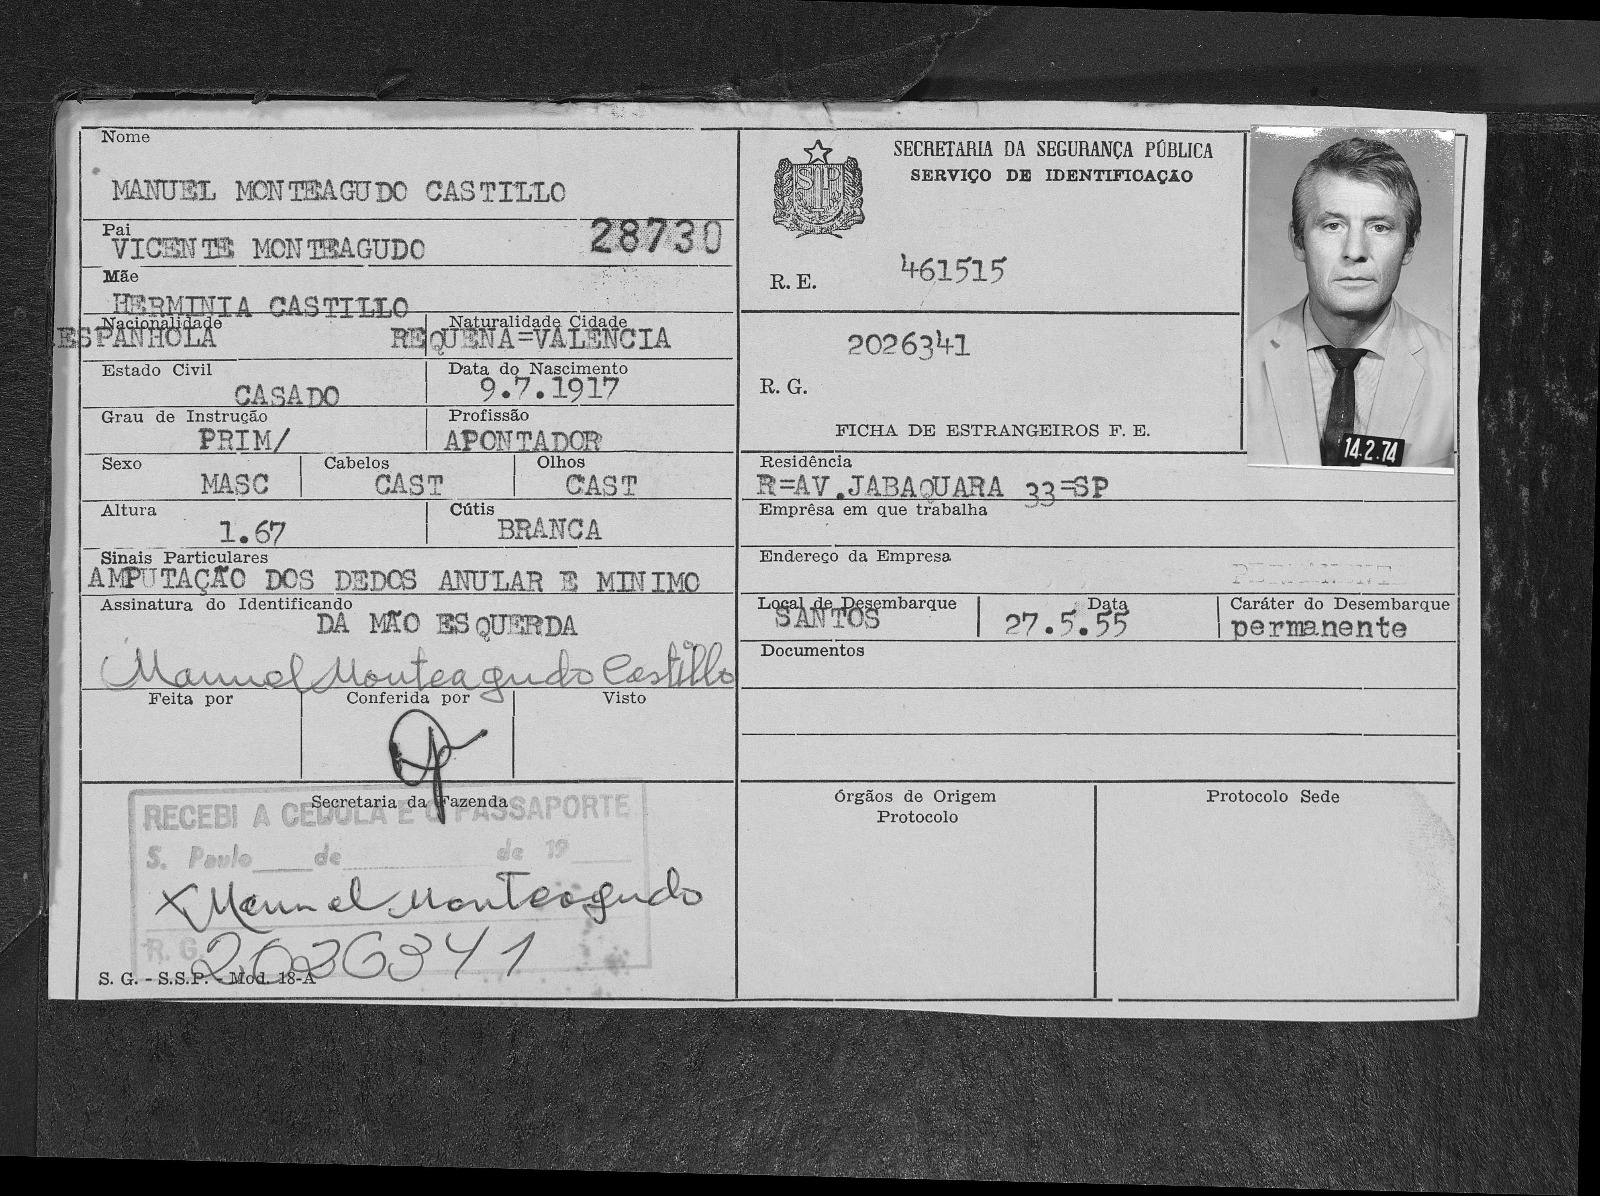 Nome
MANUEL MONTEAGUDO CASTILLO
Pai
VICENTE MONTEAGUDO
28730
Mãe
HERMINIA CASTILLO
Nacionalidade
ESPANHOLA
Naturalidade Cidade
REQUENA=VALENCIA
Estado Civil
CASADO
Data do Nascimento
9.7.1917
Grau de Instrução
PRIM/
Profissão
APONTADOR
Sexo
MASC
Cabelos
CAST
Olhos
CAST
Altura
1.67
Cútis
BRANCA
Sinais Particulares
AMPUTAÇÃO DOS DEDOS ANULAR E MINIMO
DA MÃO ESQUERDA
Assinatura do Identificando
Manuel Monteagudo Castillo
Feita por
Conferida por
Visto
Secretaria da Fazenda
RECEBI A CEDULA E O PASSAPORTE
S. Paulo____de__________de 19____
X Manuel Monteagudo
R. G. 2026341
S. G. - S.S.P. - Mod. 18-A
SP
SECRETARIA DA SEGURANÇA PÚBLICA
SERVIÇO DE IDENTIFICAÇÃO
R. E. 461515
2026341
R. G.
FICHA DE ESTRANGEIROS F. E.
14.2.74
Residência
R=AV.JABAQUARA 33=SP
Emprêsa em que trabalha
Endereço da Empresa
PERMANENTE
Local de Desembarque
SANTOS
Data
27.5.55
Caráter do Desembarque
permanente
Documentos
Órgãos de Origem
Protocolo
Protocolo Sede